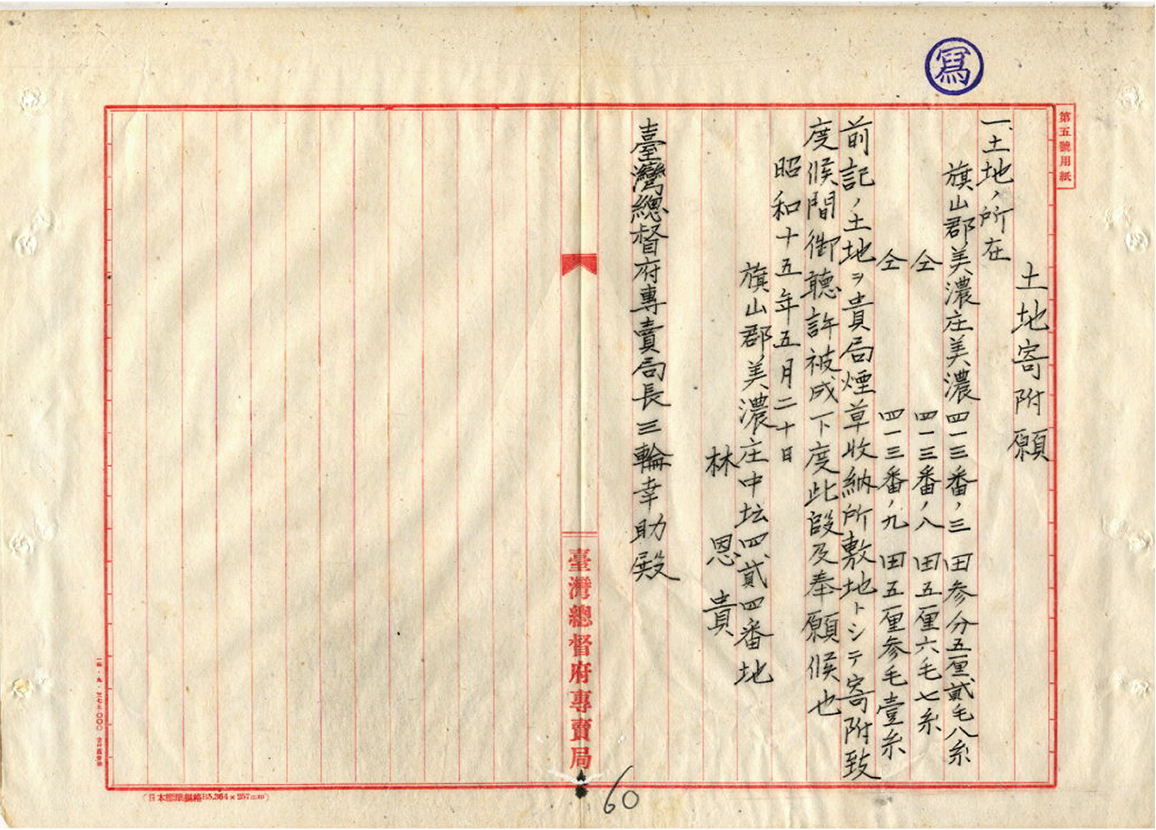 寫
第五號用紙
土地寄附願
一、土地ノ所在
旗山郡美濃庄美濃四一三番ノ三 田参分五厘貳毛八糸
仝 四一三番ノ八 田五厘六毛七糸
仝 四一三番ノ九 田五厘参毛壹糸
前記ノ土地ヲ貴局煙草收納所敷地トシテ寄附致
度候間御聽許被成下度此段及奉願候也
昭和十五年五月二十日
旗山郡美濃庄中坛四貳四番地
林恩貴
臺灣總督府專賣局長三輪幸助殿
臺灣總督府專賣局
60
(日本標準規格B5,364×257mm)